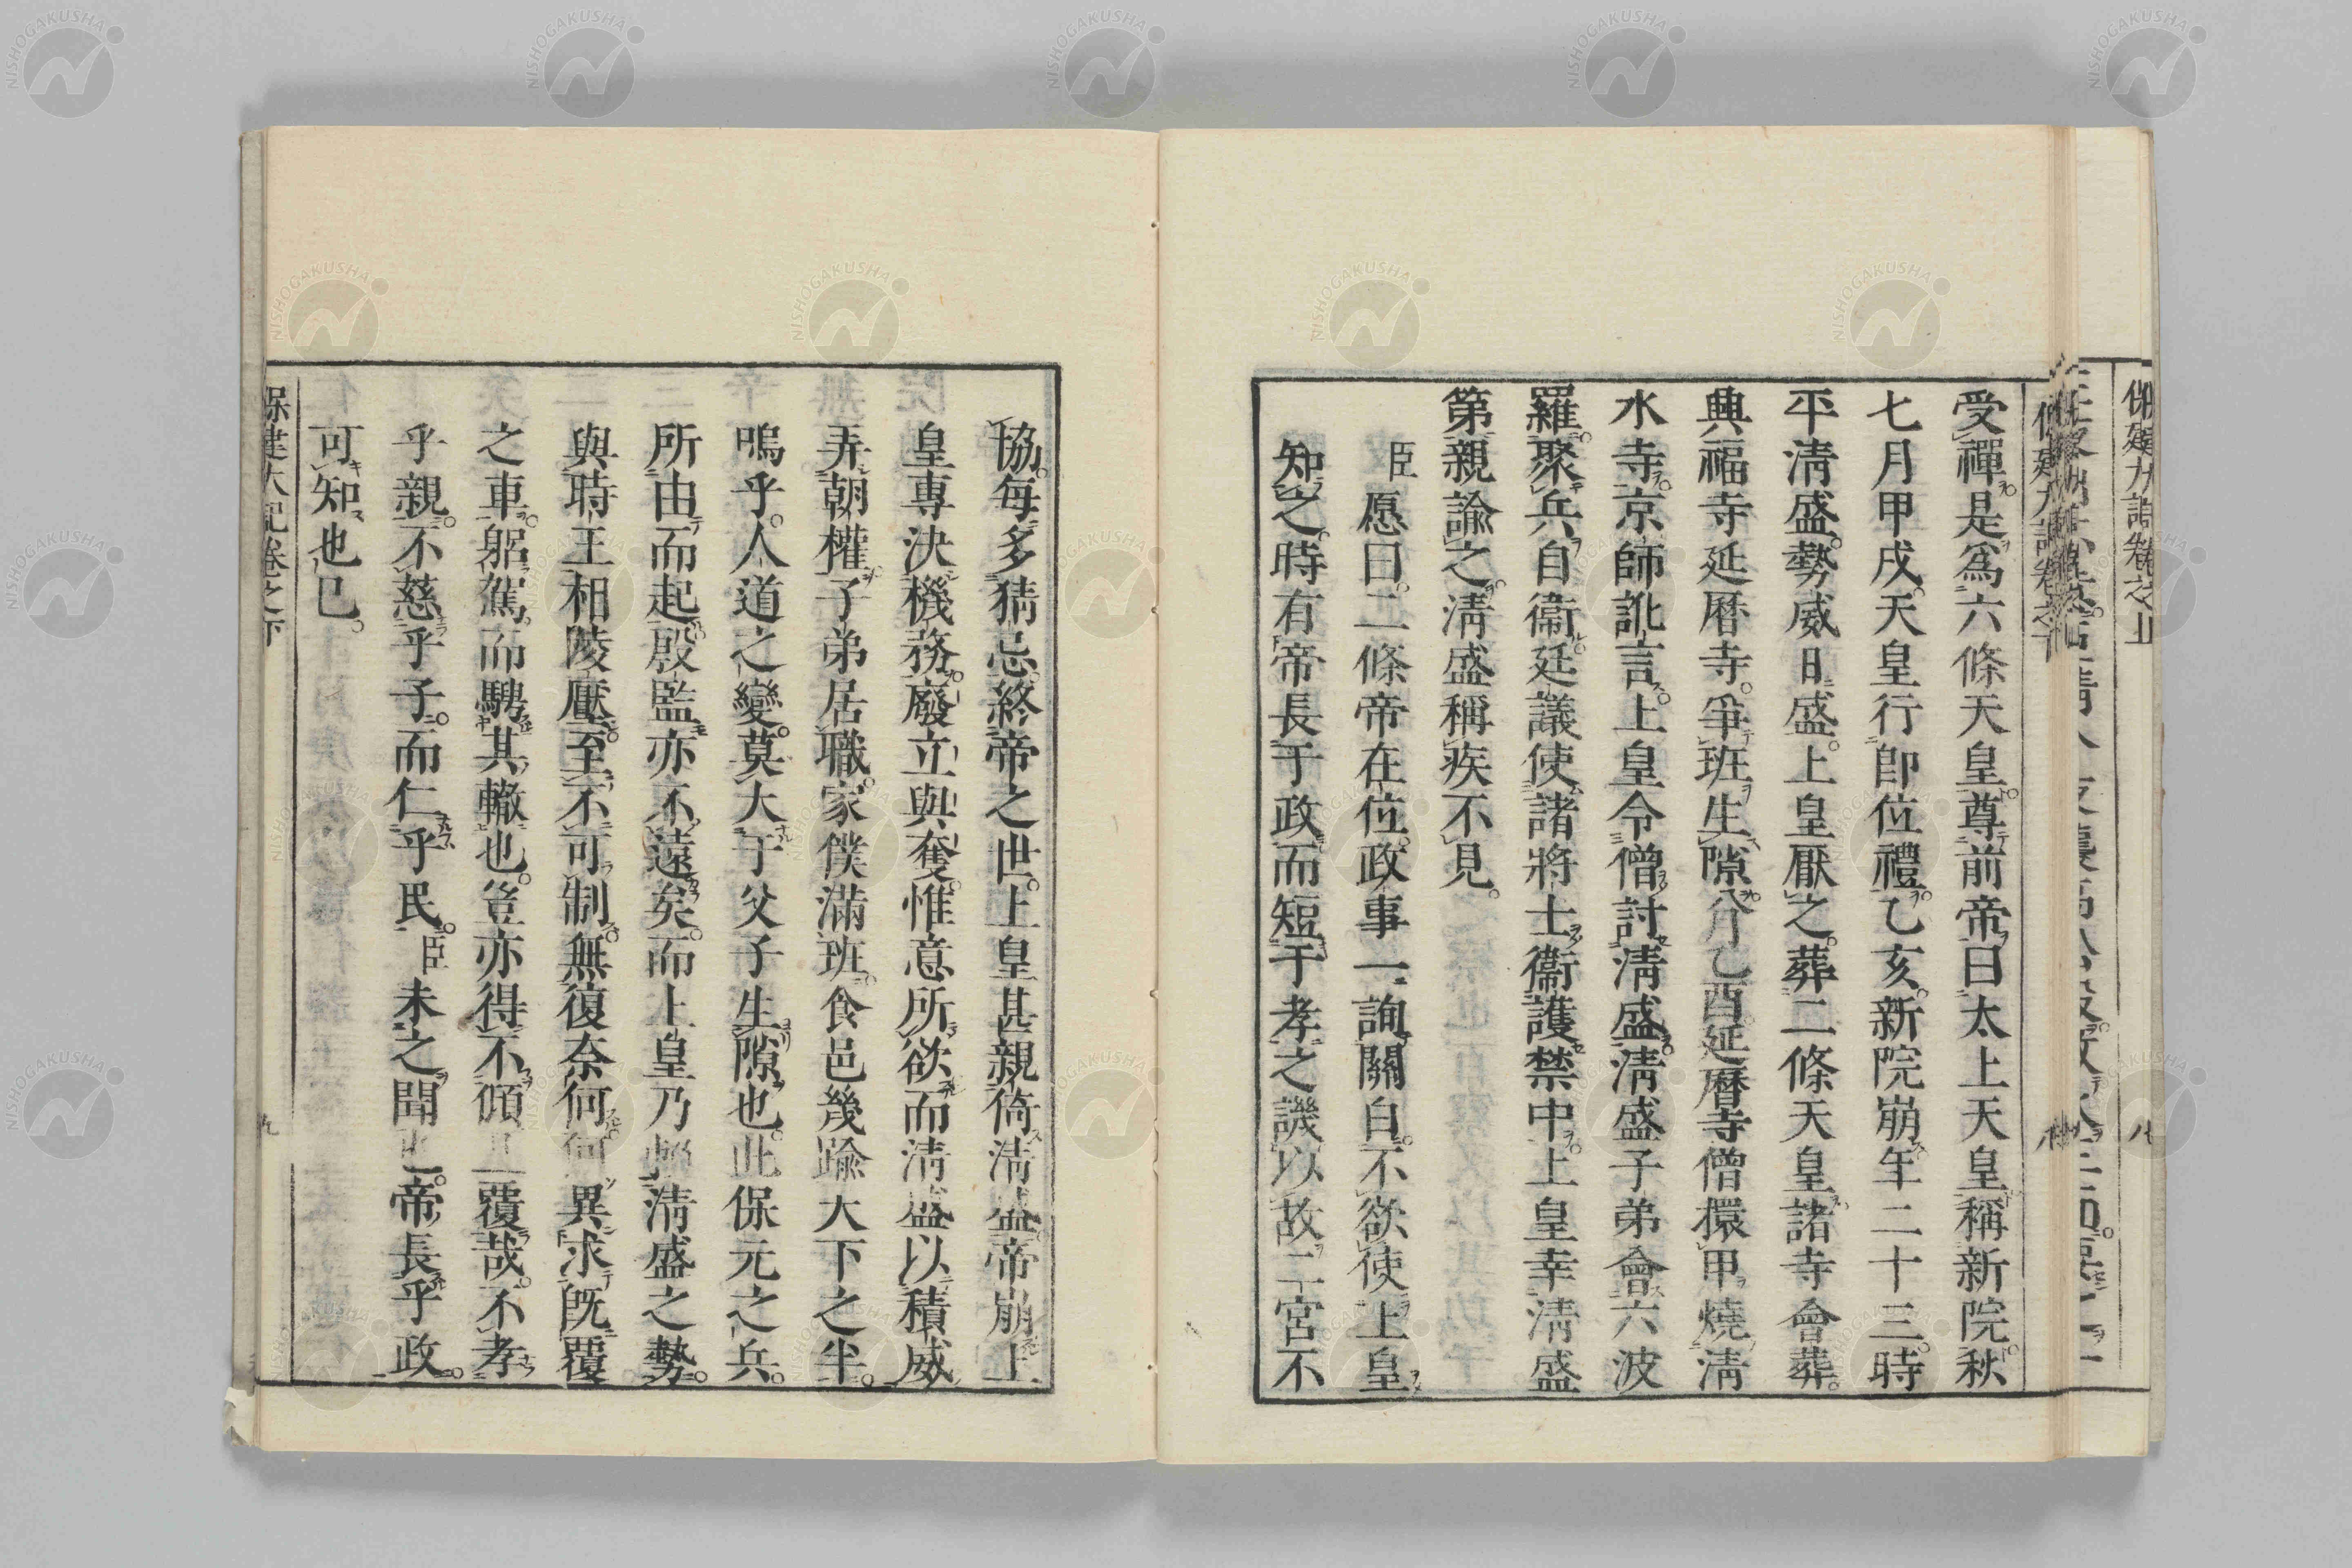 受禪是爲六條天皇尊前帝曰太上天皇稱新院秋
七月甲戌天皇行卽位禮乙亥新院崩年二十三時
平淸盛勢威日盛上皇厭之葬二條天皇諸寺會葬
興福寺延曆寺爭班生隙八月乙酉延曆寺僧擐甲燒淸
水寺京師訛言上皇令僧討淸盛淸盛子弟會六波
羅聚兵自衞廷議使諸將士衞護禁中上皇幸淸盛
第親諭之淸盛稱疾不見
臣愿曰二條帝在位政事一詢關白不欲使上皇
知之時有帝長于政而短于孝之譏以故二宮不
協每多猜忌終帝之世上皇甚親倚淸盛帝崩上
皇專決機務廢立與奪惟意所欲而淸盛以積威
弄朝權子弟居職家僕滿班食邑幾踰大下之半
嗚乎人道之變莫大于父子生隙也此保元之兵
所由而起殷監亦不遠矣而上皇乃淸盛之勢
與時王相陵壓至不可制無復奈何何異求旣覆
之車躬駕而騁其轍也豈亦得不傾且覆哉不孝
乎親不慈乎子而仁乎民臣未之聞也帝長乎政
可知也已
保建大記卷之下
九
NISHOGAKUSHA